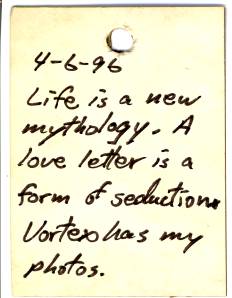 4-6-96
Life is a new
mythology. A
love letter is a
form of seduction.
Vortex has my
photos.